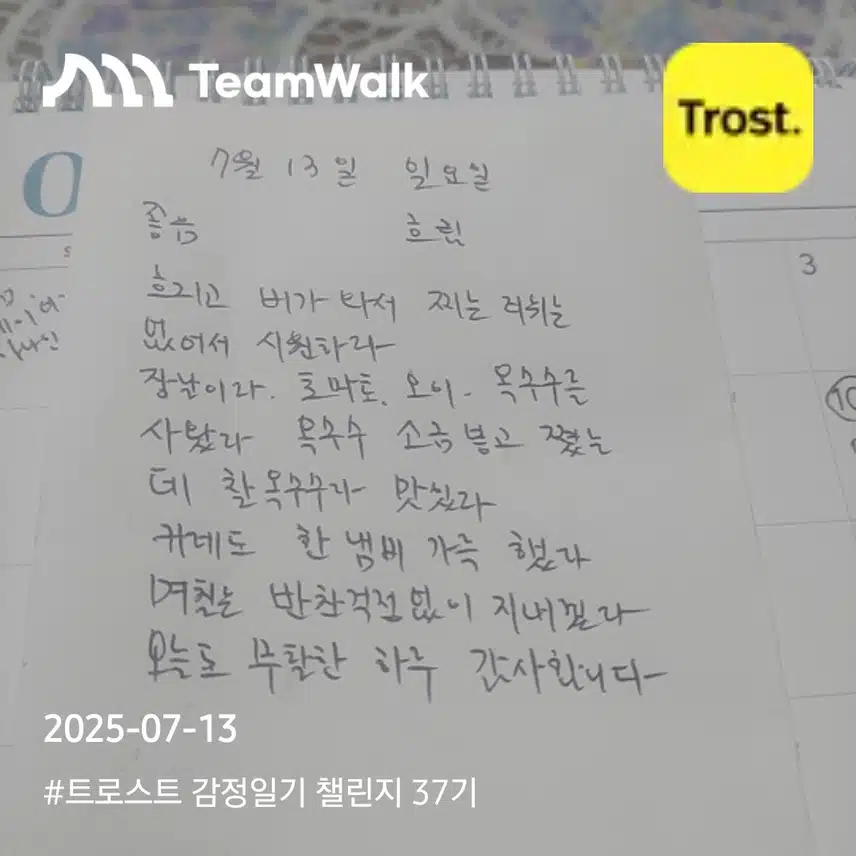 TeamWalk
Trost.
7월 13일 일요일
좋음 흐림
흐리고 비가 와서 찌는 더위는
없어서 시원하라
장날이라. 토마토, 오이. 옥수수를
사왔다 옥수수 소금 넣고 쪘는
데 찰옥수수라 맛있다
카레도 한 냄비 가득 했다
며칠은 반찬걱정없이 지내겠다
오늘도 무탈한 하루 감사합니다
3
10
2025-07-13
#트로스트 감정일기 챌린지 37기